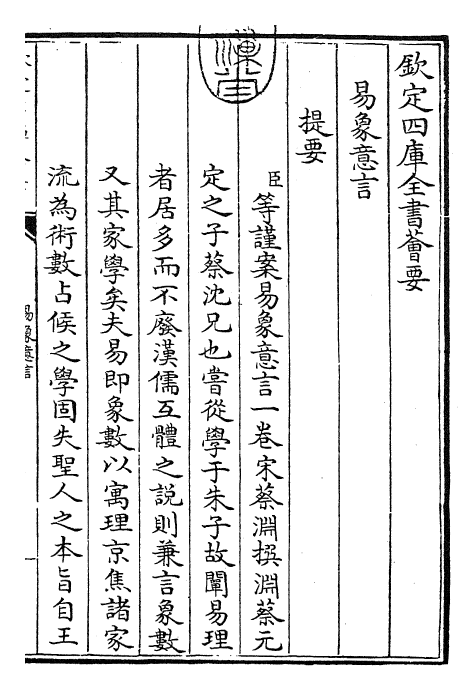 欽定四庫全書薈要
易象意言
提要
臣等謹案易象意言一卷宋蔡淵撰淵蔡元
定之子蔡沈兄也嘗從學于朱子故闡易理
者居多而不廢漢儒互體之說則兼言象數
又其家學矣夫易即象數以寓理京焦諸家
流為術數占候之學固失聖人之本旨自王
易象意言